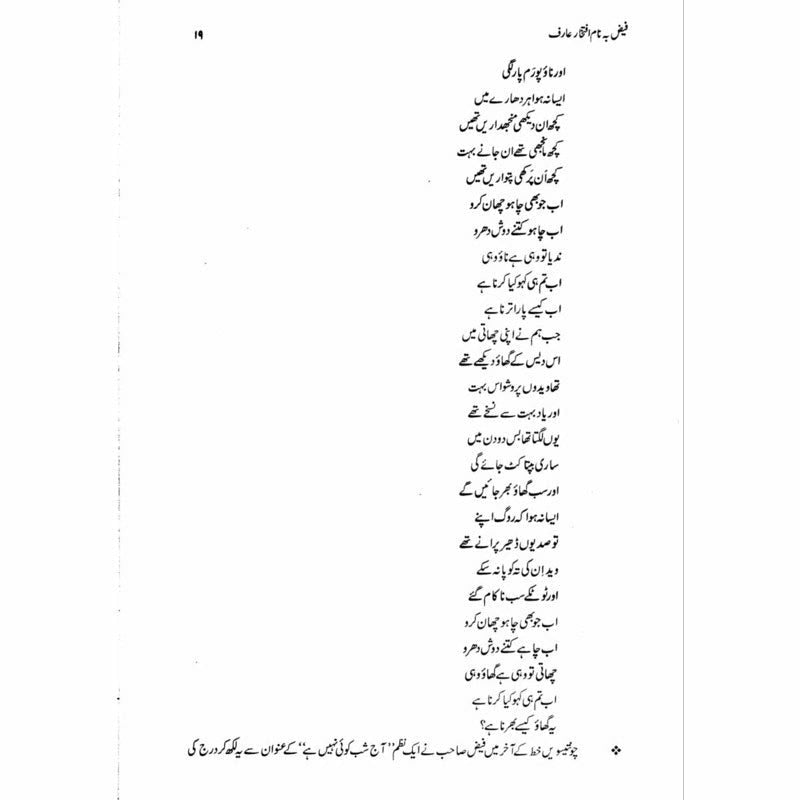 فیض بہ نام افتخار عارف ۱۹
اور ناؤ پورَم پار لگی
ایسا نہ ہوا ہر دھارے میں
کچھ ان دیکھی منجھداریں تھیں
کچھ مانجھی تھے ان جانے بہت
کچھ اَن پَرکھی پتواریں تھیں
اب جو بھی چاہو چھان کرو
اب چاہو کتنے دوش دھرو
ندیا تو وہی ہے ناؤ وہی
اب تم ہی کہو کیا کرنا ہے
اب کیسے پار اترنا ہے
جب ہم نے اپنی چھاتی میں
اس دیس کے گھاؤ دیکھے تھے
تھا ویدوں پر وشواس بہت
اور یاد بہت سے نسخے تھے
یوں لگتا تھا بس دو دن میں
ساری بپتا کٹ جائے گی
اور سب گھاؤ بھر جائیں گے
ایسا نہ ہوا کہ روگ اپنے
تو صدیوں ڈھیر پرانے تھے
وید اِن کی تہ کو پا نہ سکے
اور ٹونکے سب ناکام گئے
اب جو بھی چاہو چھان کرو
اب چاہے کتنے دوش دھرو
چھاتی تو وہی ہے گھاؤ وہی
اب تم ہی کہو کیا کرنا ہے
یہ گھاؤ کیسے بھرنا ہے؟
❖ چوبیسویں خط کے آخر میں فیض صاحب نے ایک نظم ”آج شب کوئی نہیں ہے“ کے عنوان سے یہ لکھ کر درج کی